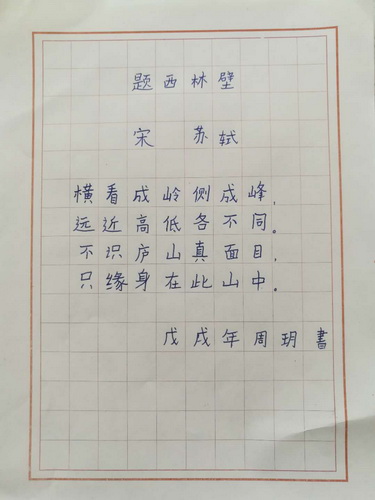 题西林壁
宋 苏轼
横看成岭侧成峰，
远近高低各不同。
不识庐山真面目，
只缘身在此山中。
戊戌年周玥書